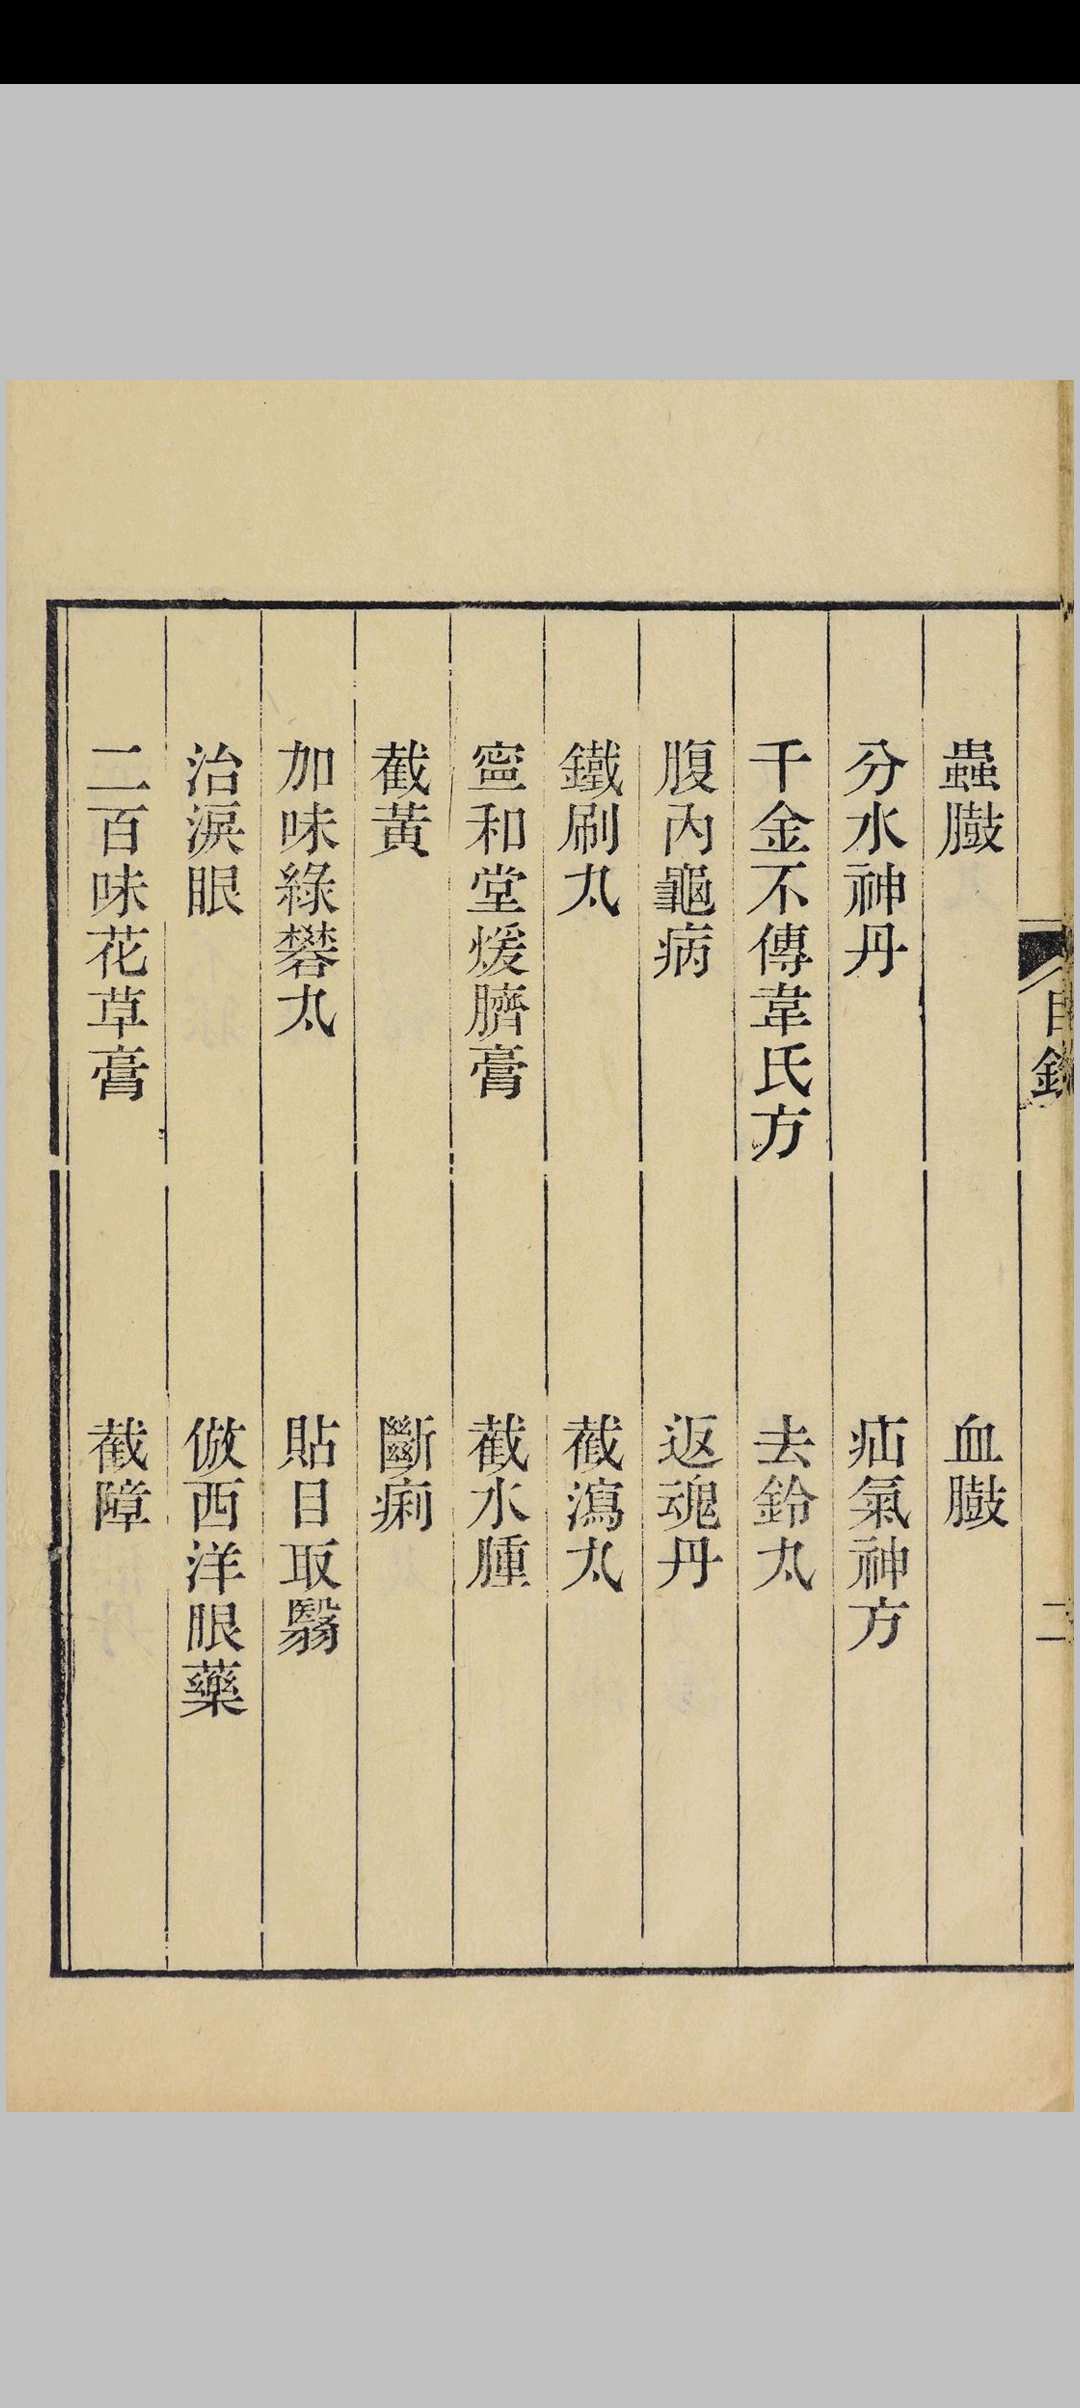 目錄
二
蟲臌
血臌
分水神丹
疝氣神方
千金不傳韋氏方
去鈴丸
腹內龜病
返魂丹
鐵刷丸
截瀉丸
寍和堂煖臍膏
截水腫
截黃
斷痢
加味綠礬丸
貼目取翳
治淚眼
倣西洋眼藥
二百味花草膏
截障